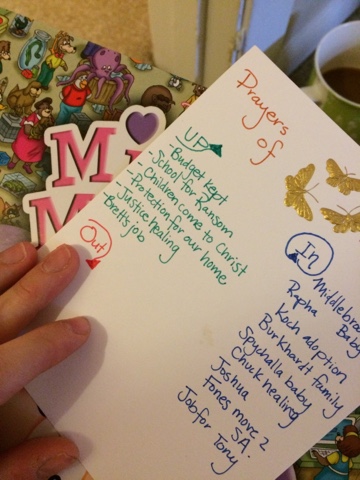 Prayers
of
UP
Budget kept
- School for Ransom
- Children come to Christ
- Protection for our home
- Justice healing
Brett's job
Out
In
Baby
Rapha
Koch adoption
Burkhardt family
Spychalla baby
Chuck healing
Joshua
Fones move 2
SA.
Job for Tony